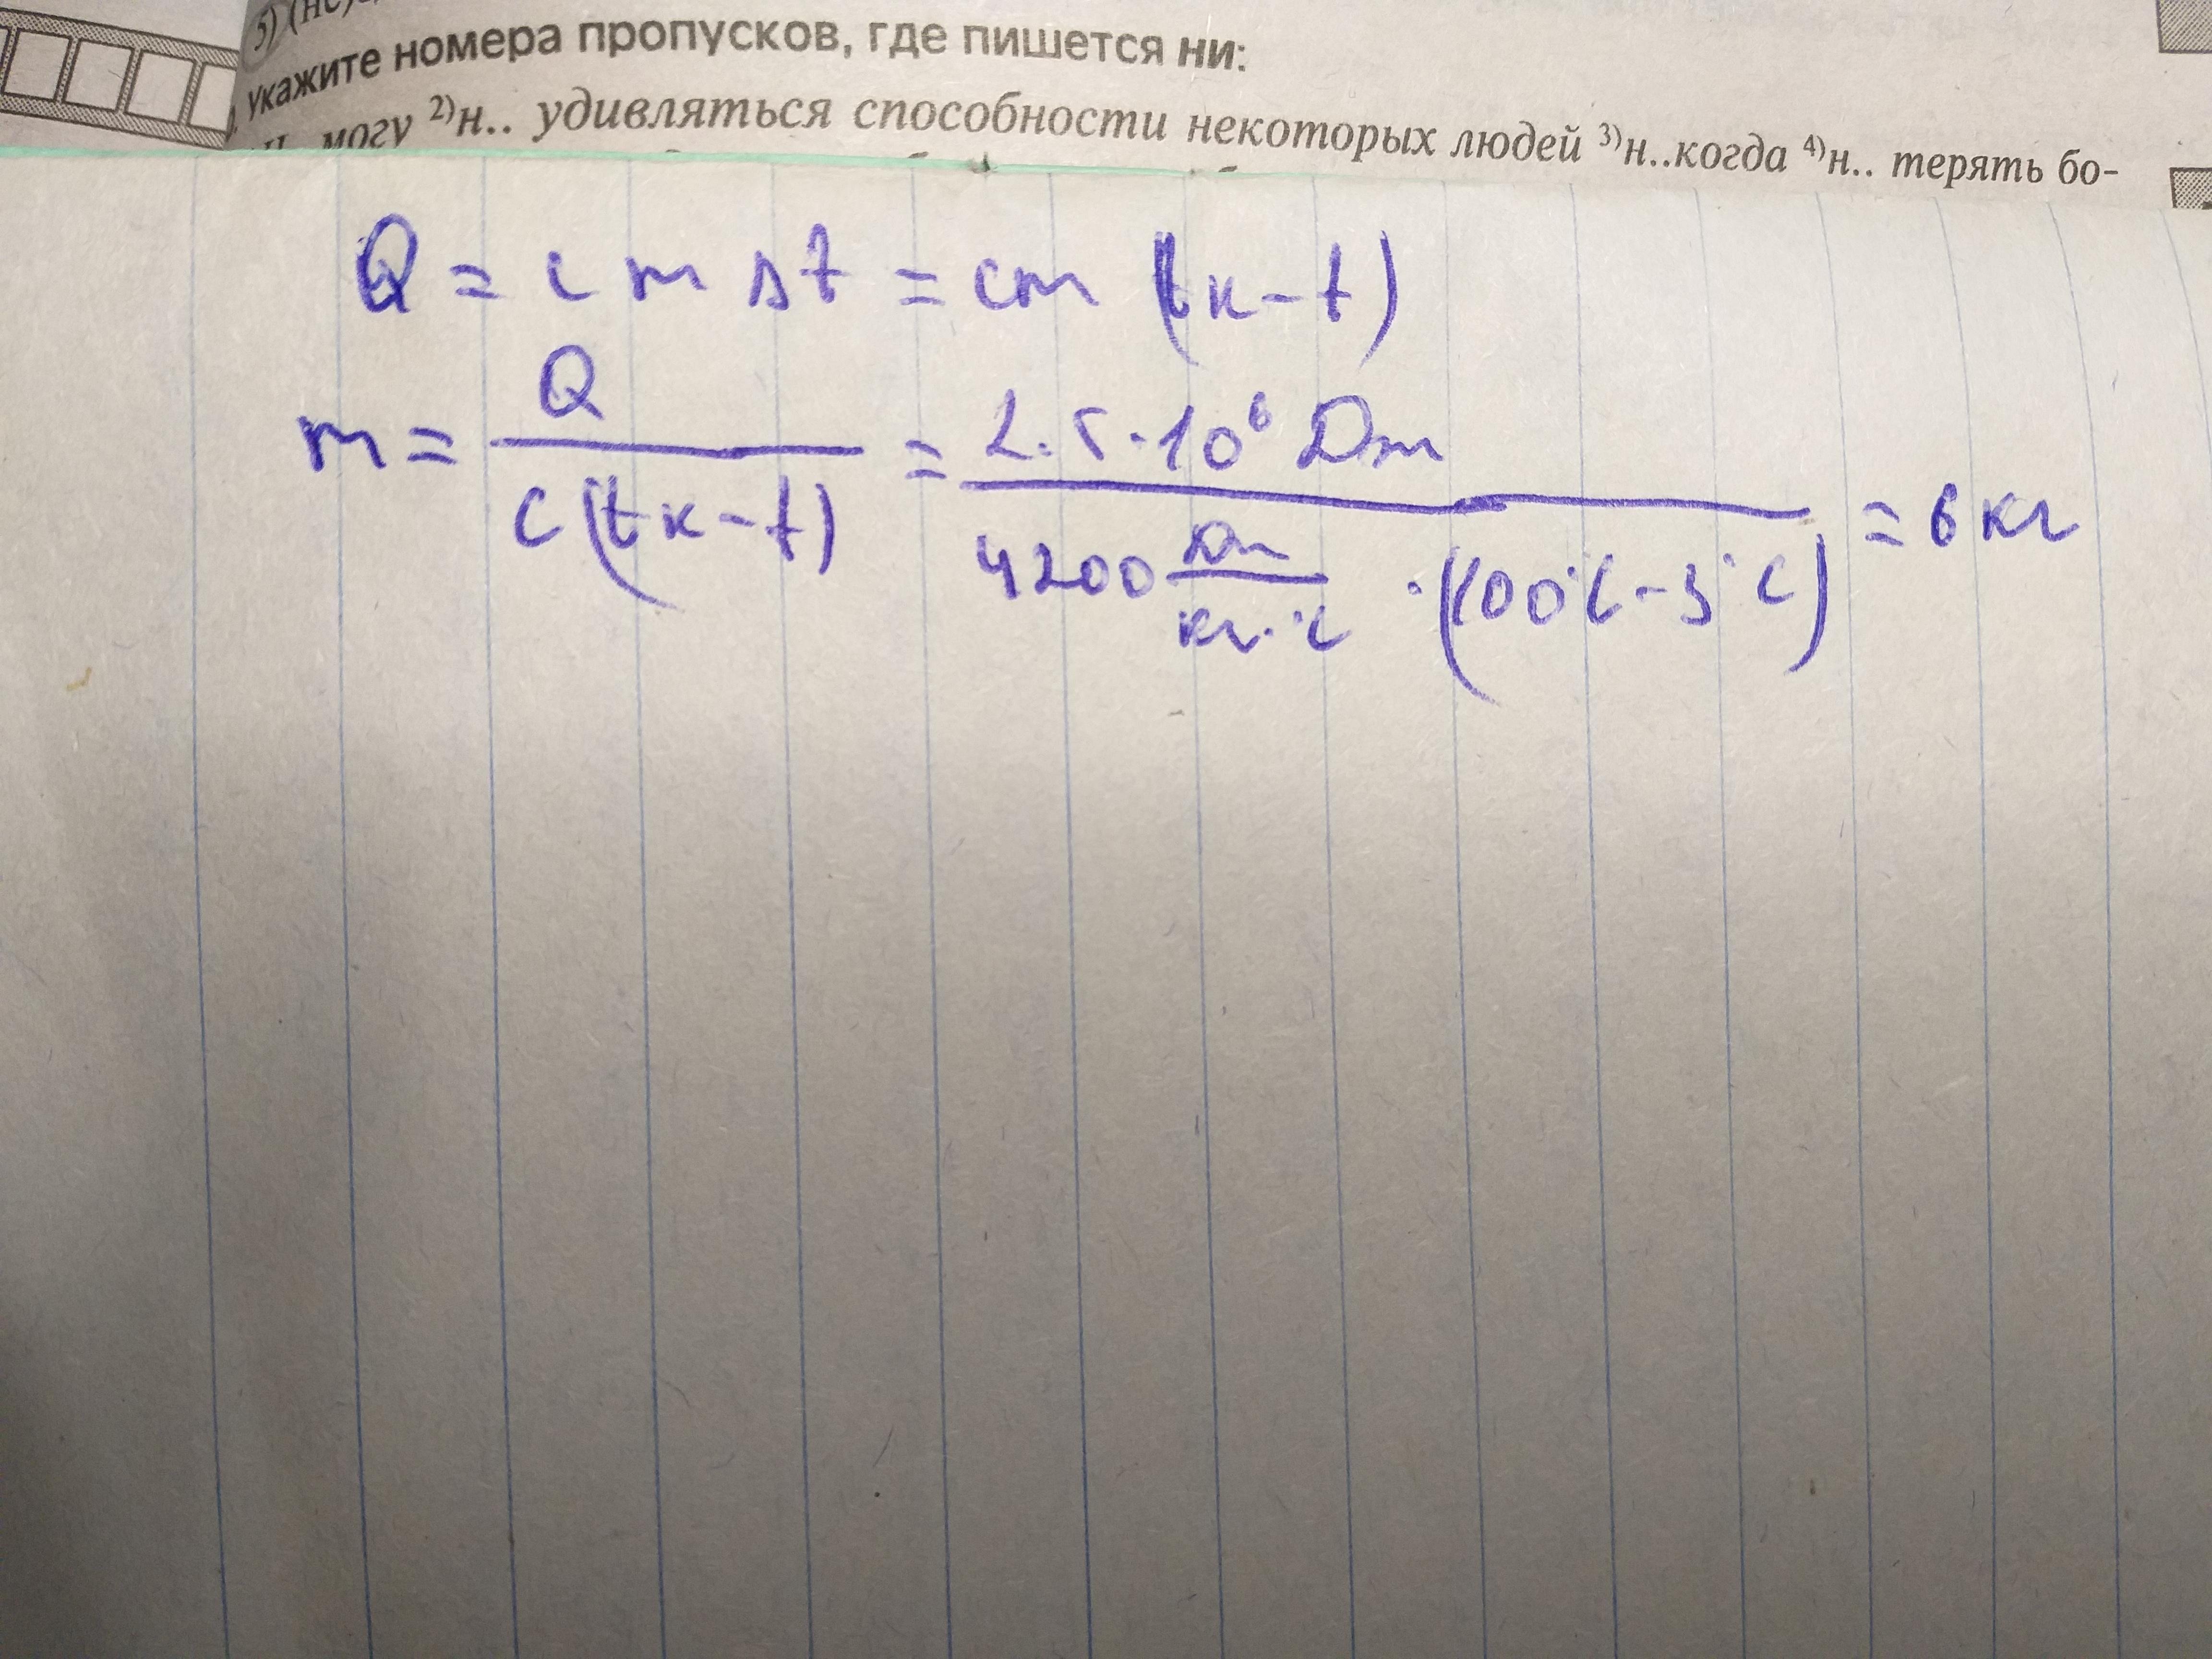 5) (не)
Укажите номера пропусков, где пишется ни:
могу ²⁾н.. удивляться способности некоторых людей ³⁾н..когда ⁴⁾н.. терять бо-
Q = c m Δt = cm (tк - t)
m = Q / c(tк - t) = 2.5 · 10⁶ Дж / 4200 Дж/кг·°C · (100°C - 5°C) = 6 кг